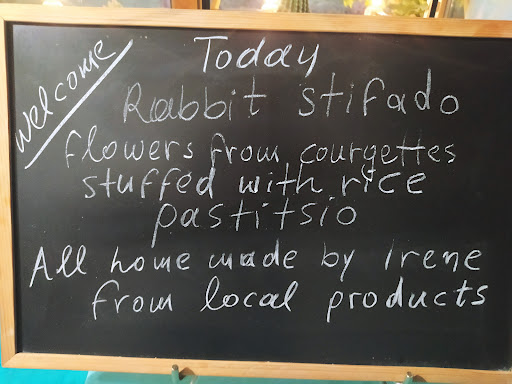 Welcome
Today
Rabbit stifado
flowers from courgettes
stuffed with rice
pastitsio
All home made by Irene
from local products